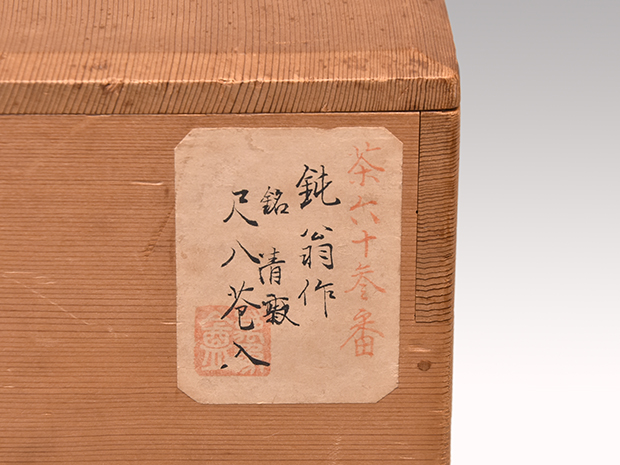 茶六十参番
鈍翁作
銘 清寂
尺八花入